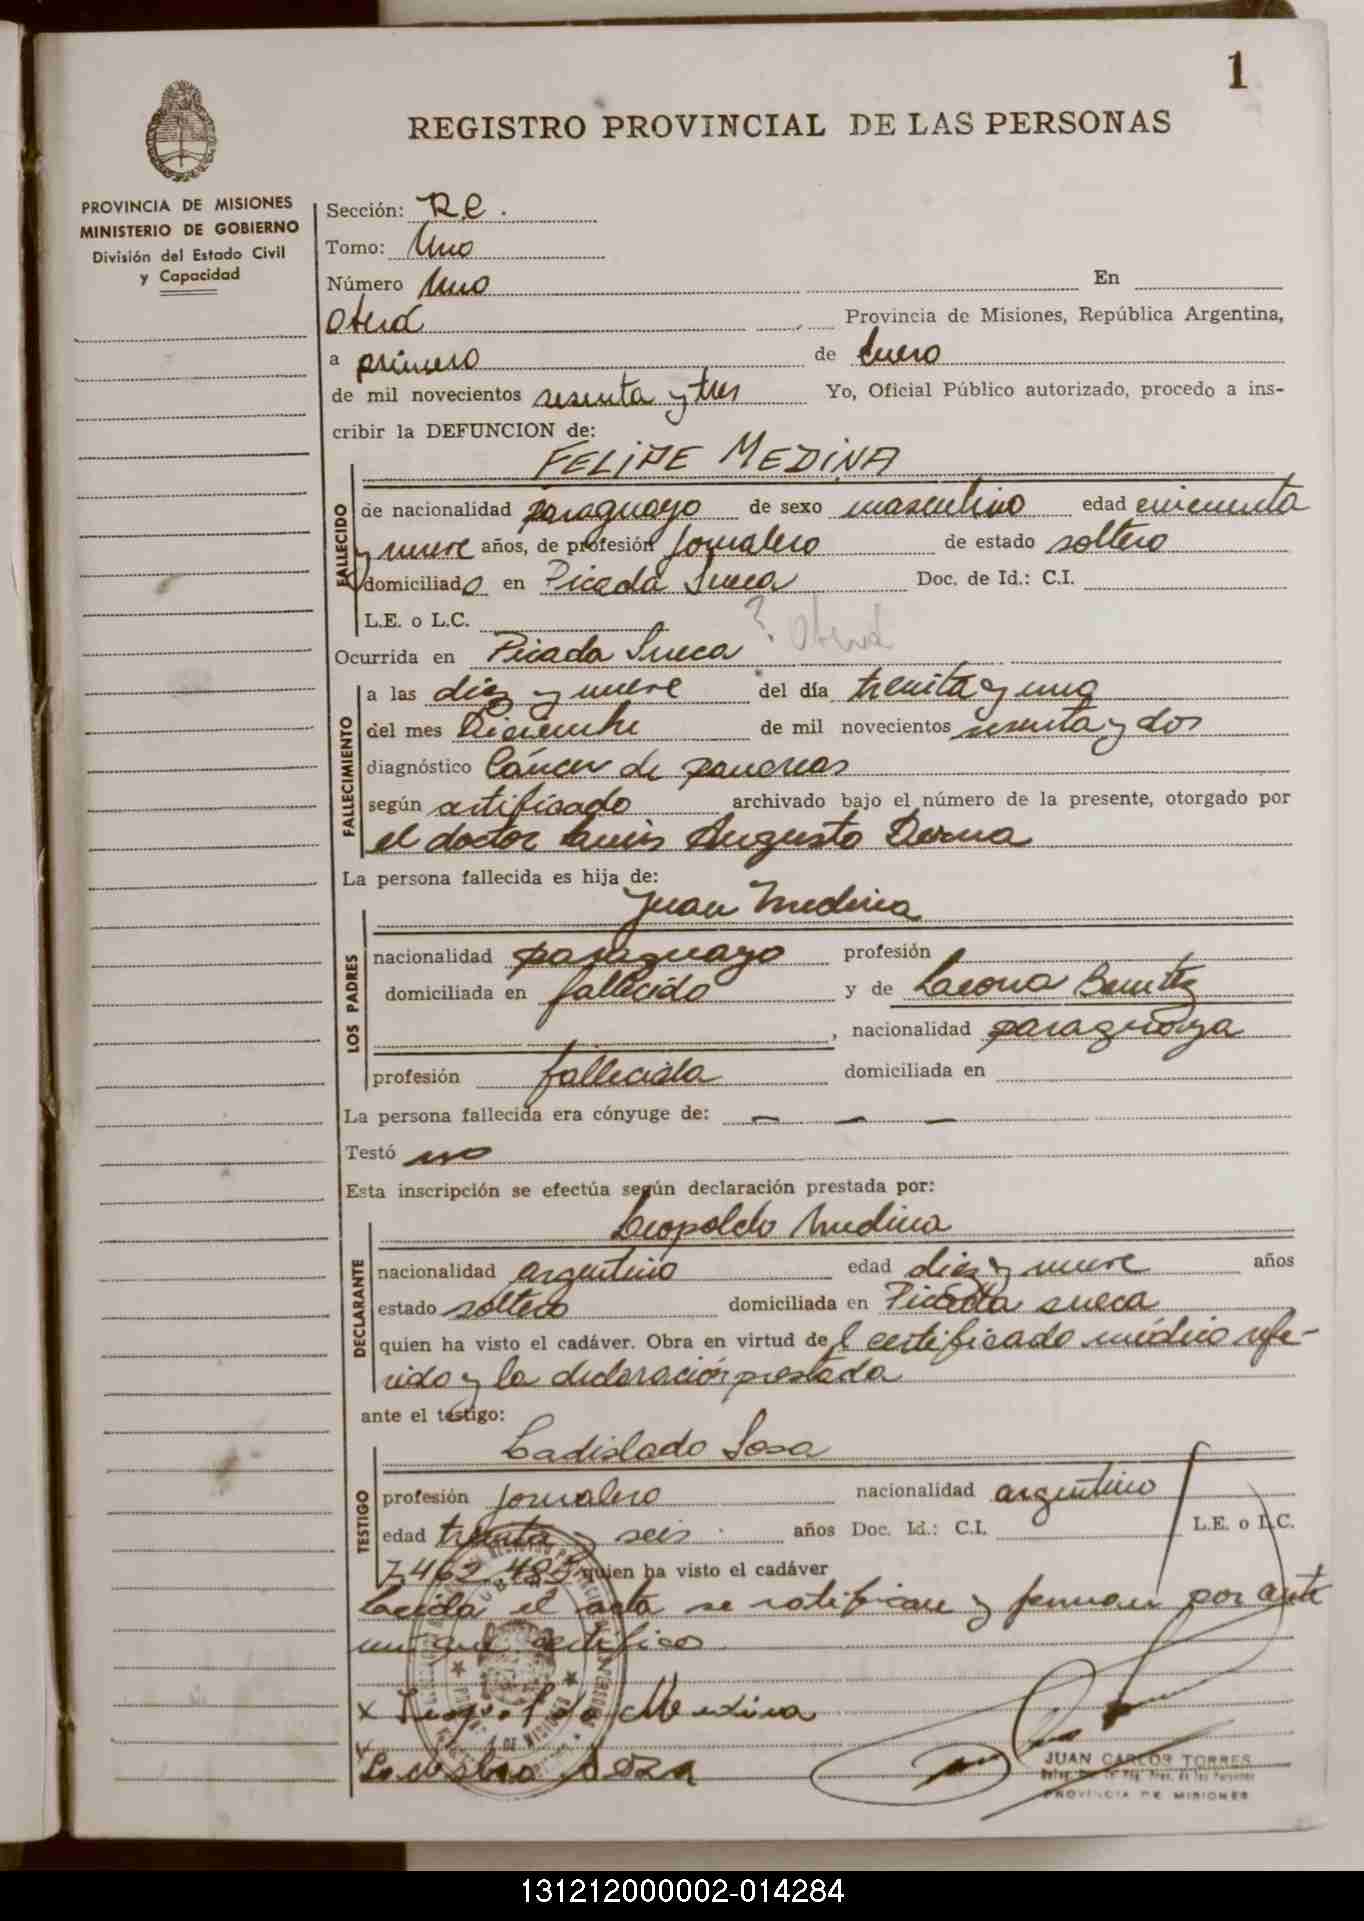 1
REGISTRO PROVINCIAL DE LAS PERSONAS
PROVINCIA DE MISIONES
MINISTERIO DE GOBIERNO
División del Estado Civil
y Capacidad
Sección: R.C.
Tomo: Uno
Número Uno En
Oberá Provincia de Misiones, República Argentina,
a primero de Enero
de mil novecientos sesenta y tres Yo, Oficial Público autorizado, procedo a ins-
cribir la DEFUNCION de:
FELIPE MEDINA
FALLECIDO
de nacionalidad paraguayo de sexo masculino edad cincuenta
y nueve años, de profesión Jornalero de estado soltero
domiciliado en Picada Sueca Doc. de Id.: C.I.
L.E. o L.C. ? Oberá
Ocurrida en Picada Sueca
FALLECIMIENTO
a las diez y nueve del día treinta y uno
del mes Diciembre de mil novecientos sesenta y dos
diagnóstico Cáncer de pancreas
según certificado archivado bajo el número de la presente, otorgado por
el doctor Luis Augusto Derna
La persona fallecida es hija de:
Juan Medina
LOS PADRES
nacionalidad paraguayo profesión
domiciliada en fallecido y de Leona Benitez
, nacionalidad paraguaya
profesión fallecida domiciliada en
La persona fallecida era cónyuge de: — — —
Testó no
Esta inscripción se efectúa según declaración prestada por:
Leopoldo Medina
DECLARANTE
nacionalidad argentino edad diez y nueve años
estado soltero domiciliada en Picada sueca
quien ha visto el cadáver. Obra en virtud del certificado médico refe-
rido y la declaración prestada
ante el testigo:
Ladislado Sosa
TESTIGO
profesión Jornalero nacionalidad argentino
edad treinta y seis años Doc. Id.: C.I. L.E. o L.C.
7.462.485 quien ha visto el cadáver
Leida el acta se ratifican y firman por ante
mi que certifico
x Medina
Sosa
JUAN CARLOS TORRES
PROVINCIA DE MISIONES
131212000002-014284